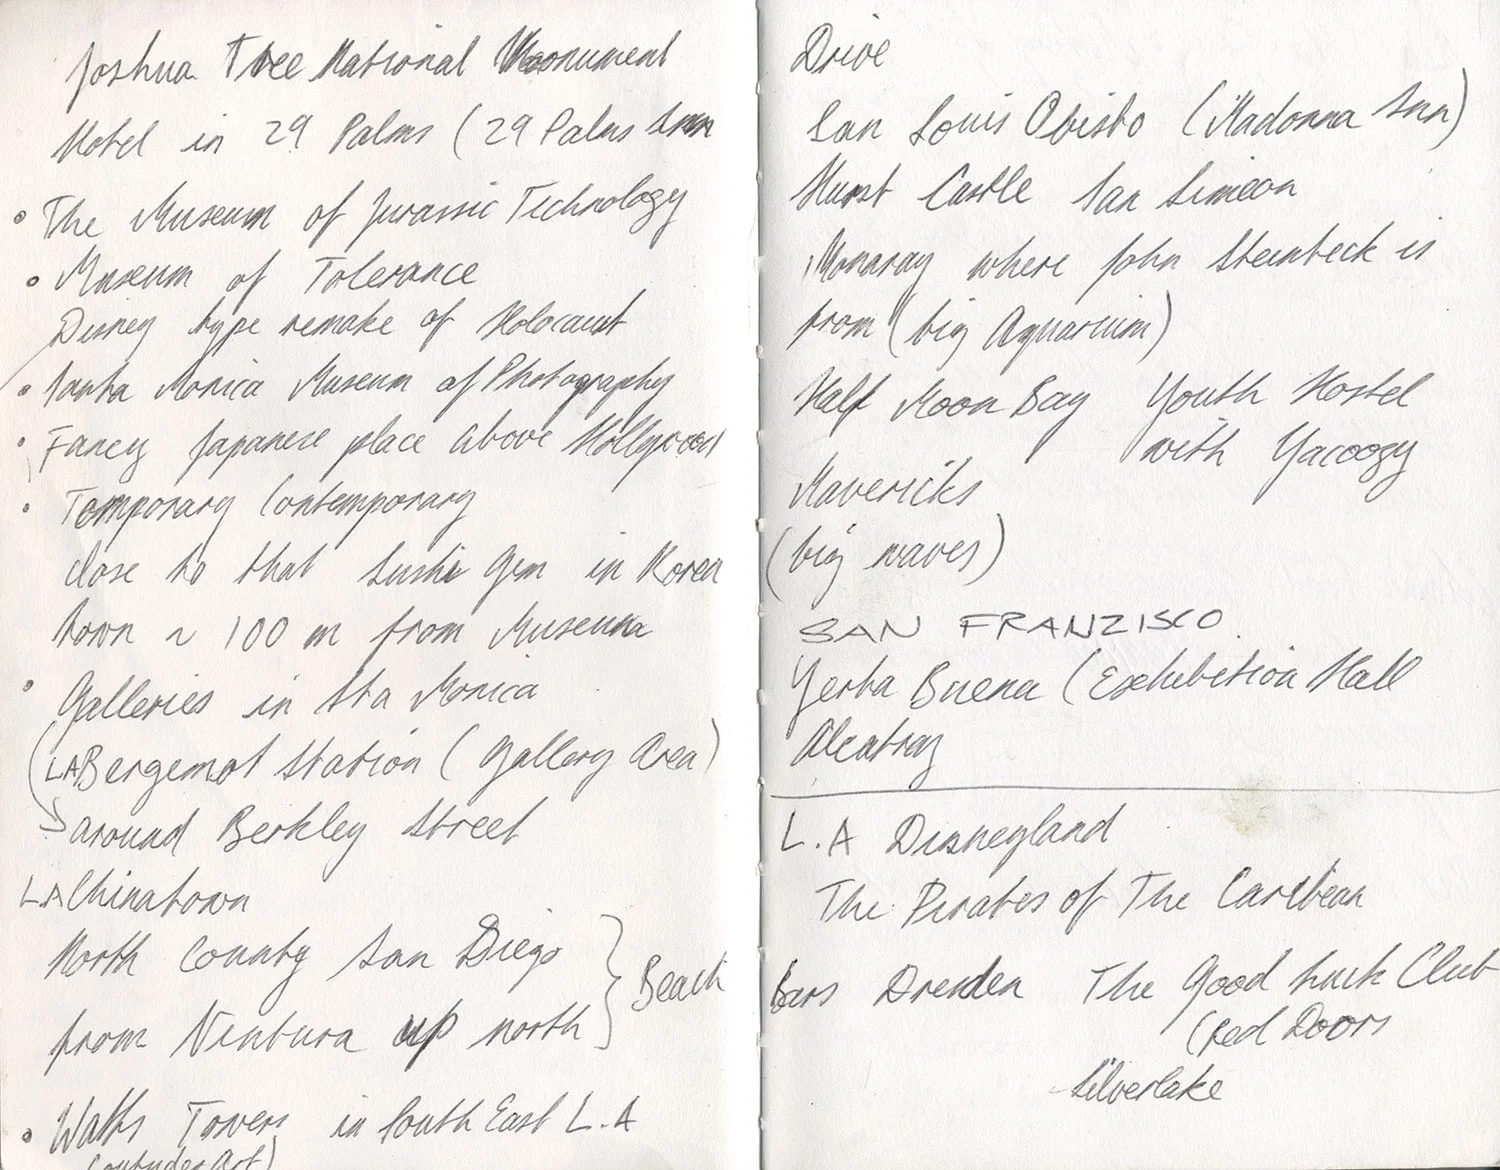 Joshua Tree National Monument
Motel in 29 Palms (29 Palms Inn
• The Museum of Jurassic Technology
• Museum of Tolerance
Disney type remake of Holocaust
• Santa Monica Museum of Photography
• Fancy Japanese place above Hollywood
• Temporary Contemporary
close to that Sushi Gen in Korea
town ~ 100 m from Museum
• Galleries in Sta Monica
(LA Bergemot Station (Gallery Area)
→ around Berkley Street
LA Chinatown
North County San Diego } Beach
from Ventura up north
• Watts Towers in South East L.A
(outsider Art)
Drive
San Louis Obisbo (Madonna Inn)
Hurst Castle San Simeon
Monaray where John Steinbeck is
from (big Aquarium)
Half Moon Bay Youth Hostel
with Yacoogy
Mavericks
(big waves)
SAN FRANZISCO.
Yerba Buena (Exhibetion Hall
Alcatraz
L.A Disneyland
The Pirates of The Caribean
Bars Dresden The Good Luck Club
(Red Doors
Silverlake